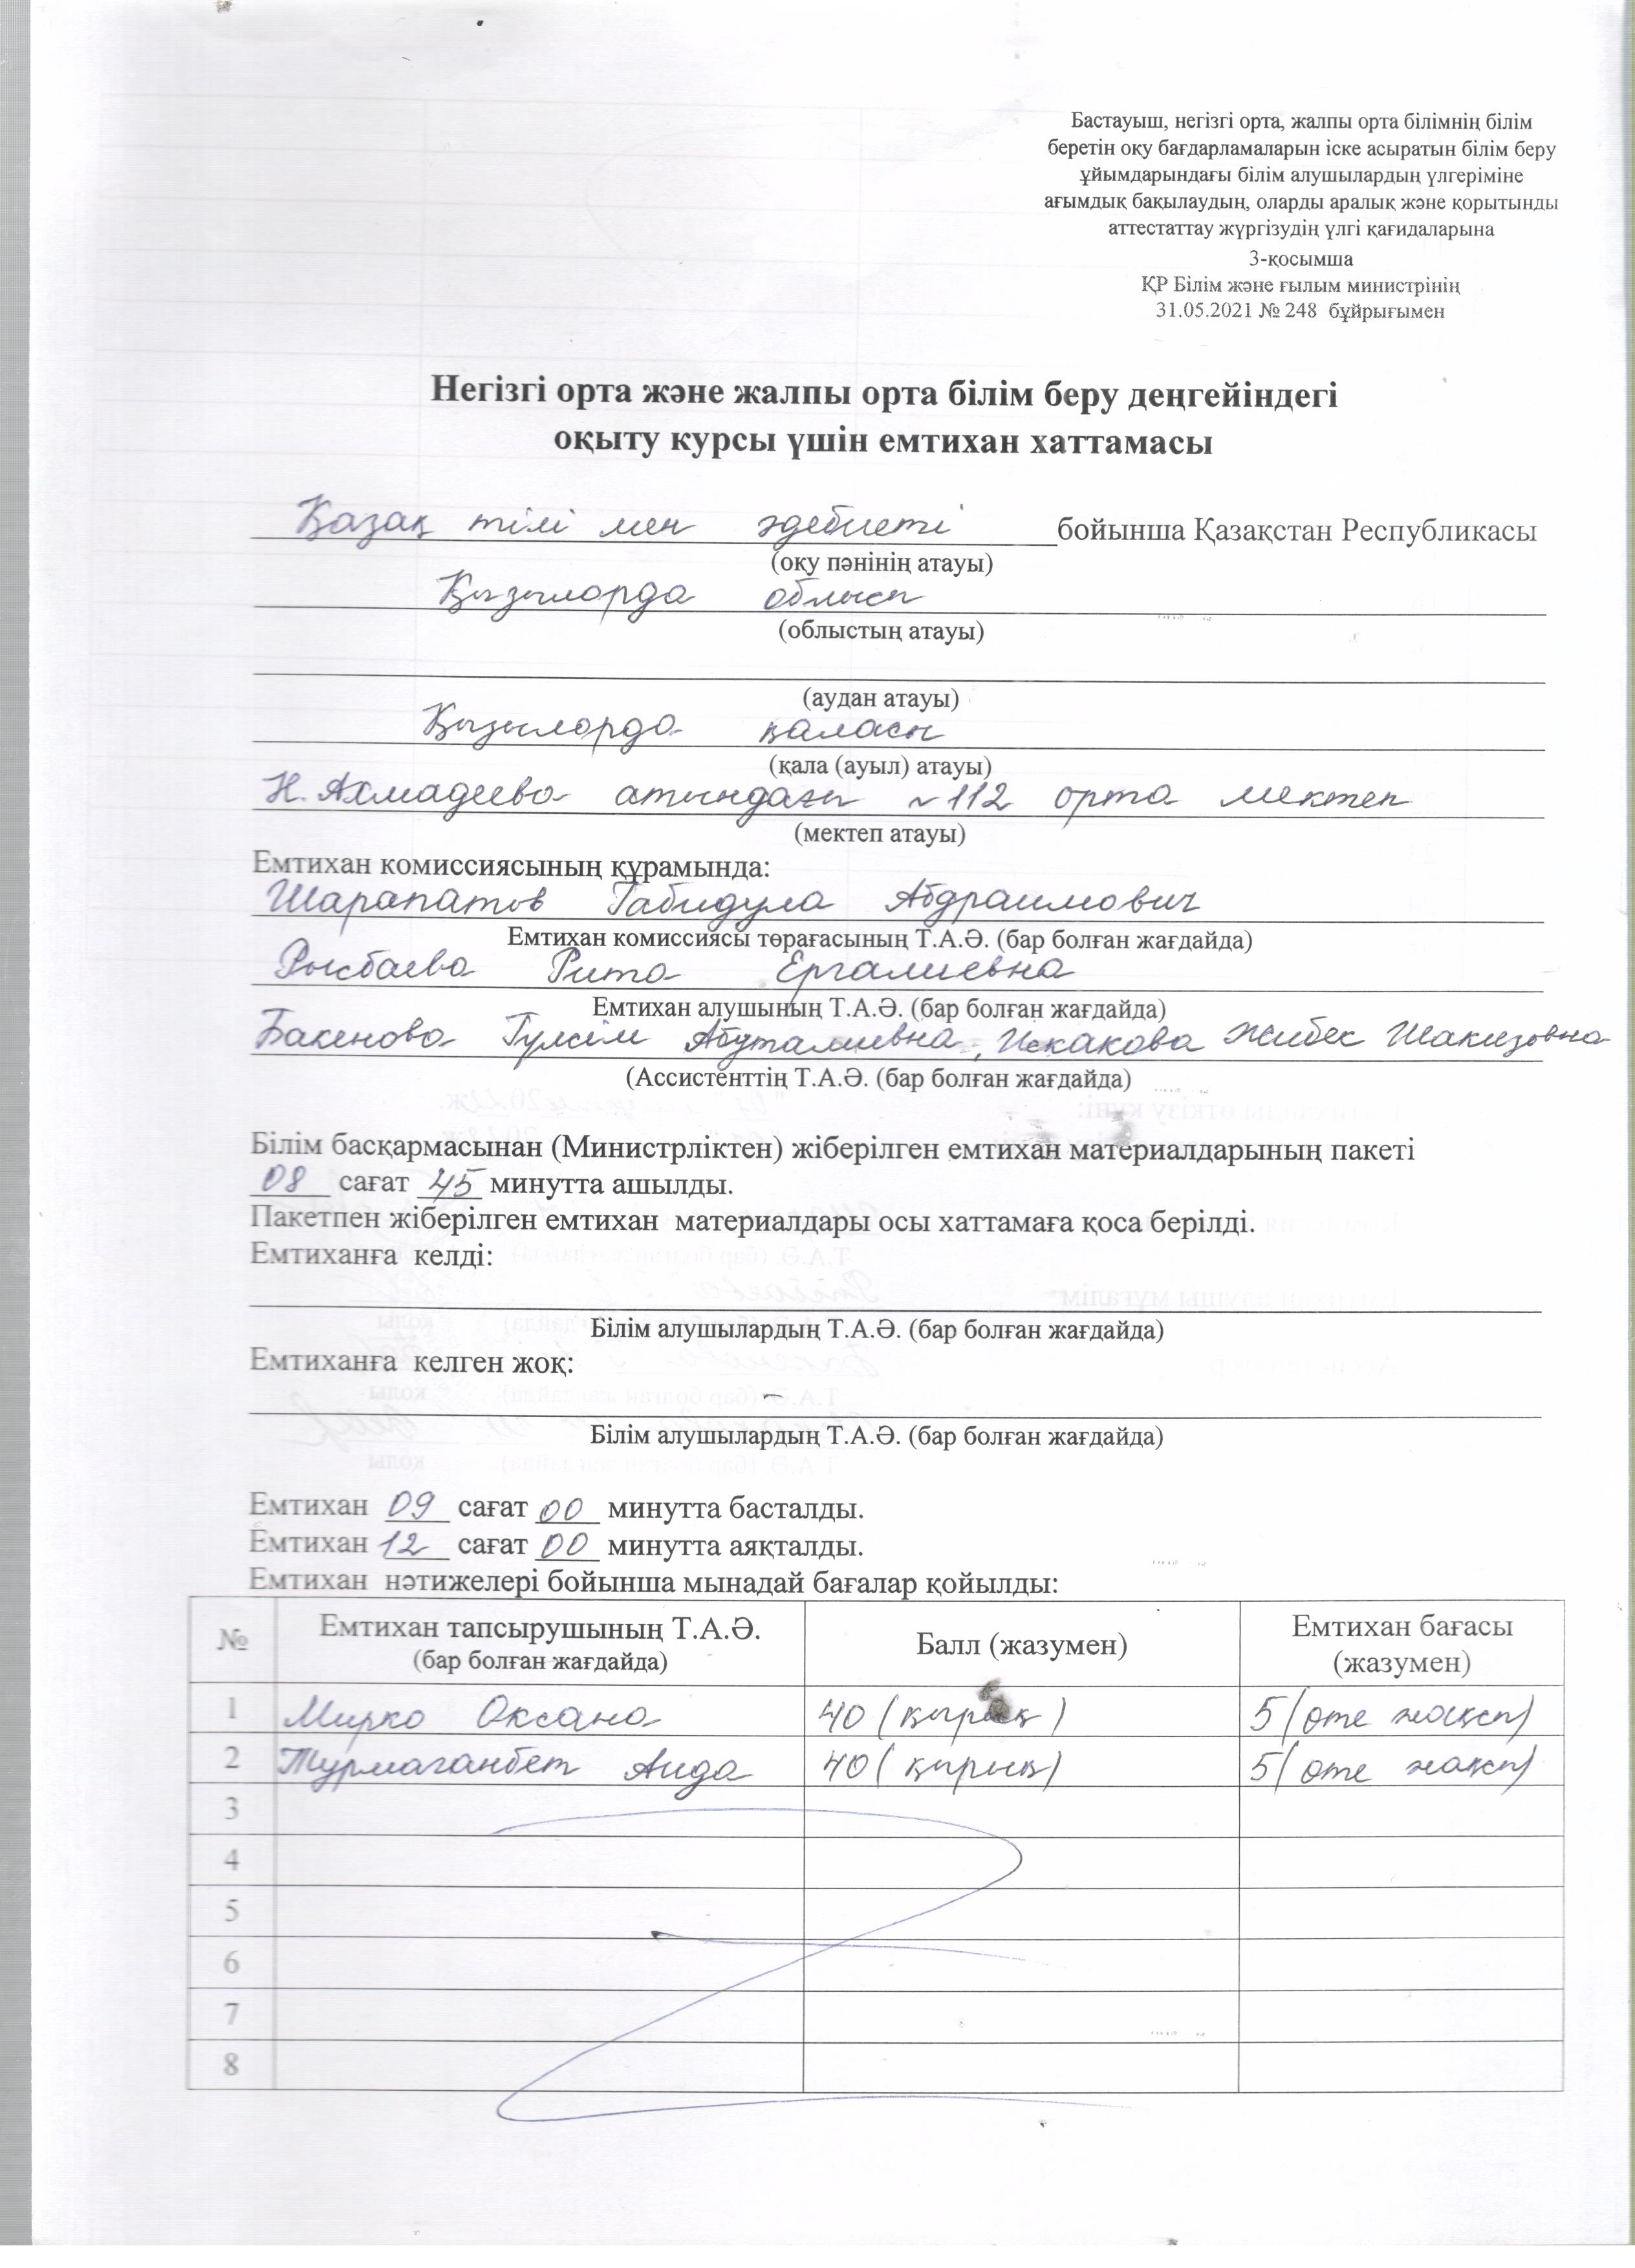 Бастауыш, негізгі орта, жалпы орта білімнің білім
беретін оқу бағдарламаларын іске асыратын білім беру
ұйымдарындағы білім алушылардың үлгеріміне
ағымдық бақылаудың, оларды аралық және қорытынды
аттестаттау жүргізудің үлгі қағидаларына
3-қосымша
ҚР Білім және ғылым министрінің
31.05.2021 № 248 бұйрығымен
Негізгі орта және жалпы орта білім беру деңгейіндегі
оқыту курсы үшін емтихан хаттамасы
Қазақ тілі мен әдебиеті бойынша Қазақстан Республикасы
(оқу пәнінің атауы)
Қызылорда облысы
(облыстың атауы)
(аудан атауы)
Қызылорда қаласы
(қала (ауыл) атауы)
Н. Ахмадеева атындағы №112 орта мектеп
(мектеп атауы)
Емтихан комиссиясының құрамында:
Шарапатов Габидула Абдраимович
Емтихан комиссиясы төрағасының Т.А.Ә. (бар болған жағдайда)
Рысбаева Рита Ергалиевна
Емтихан алушының Т.А.Ә. (бар болған жағдайда)
Бакенова Гүлсім Абуталиевна, Искакова Жибек Шакизовна
(Ассистенттің Т.А.Ә. (бар болған жағдайда)
Білім басқармасынан (Министрліктен) жіберілген емтихан материалдарының пакеті
08 сағат 45 минутта ашылды.
Пакетпен жіберілген емтихан материалдары осы хаттамаға қоса берілді.
Емтиханға келді:
Білім алушылардың Т.А.Ә. (бар болған жағдайда)
Емтиханға келген жоқ:
–
Білім алушылардың Т.А.Ә. (бар болған жағдайда)
Емтихан 09 сағат 00 минутта басталды.
Емтихан 12 сағат 00 минутта аяқталды.
Емтихан нәтижелері бойынша мынадай бағалар қойылды:
№ Емтихан тапсырушының Т.А.Ә. (бар болған жағдайда) Балл (жазумен) Емтихан бағасы (жазумен)
1 Мирко Оксана 40 (қырық) 5 (өте жақсы)
2 Турмаганбет Аида 40 (қырық) 5 (өте жақсы)
3
4
5
6
7
8